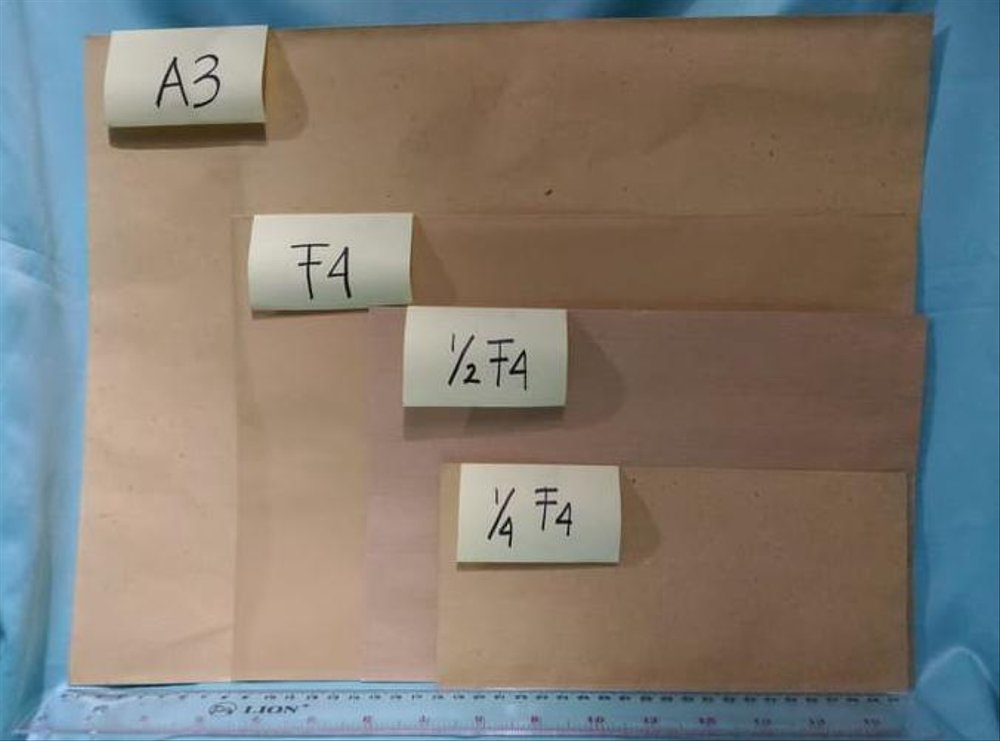 A3
F4
1/2 F4
1/4 F4
LION